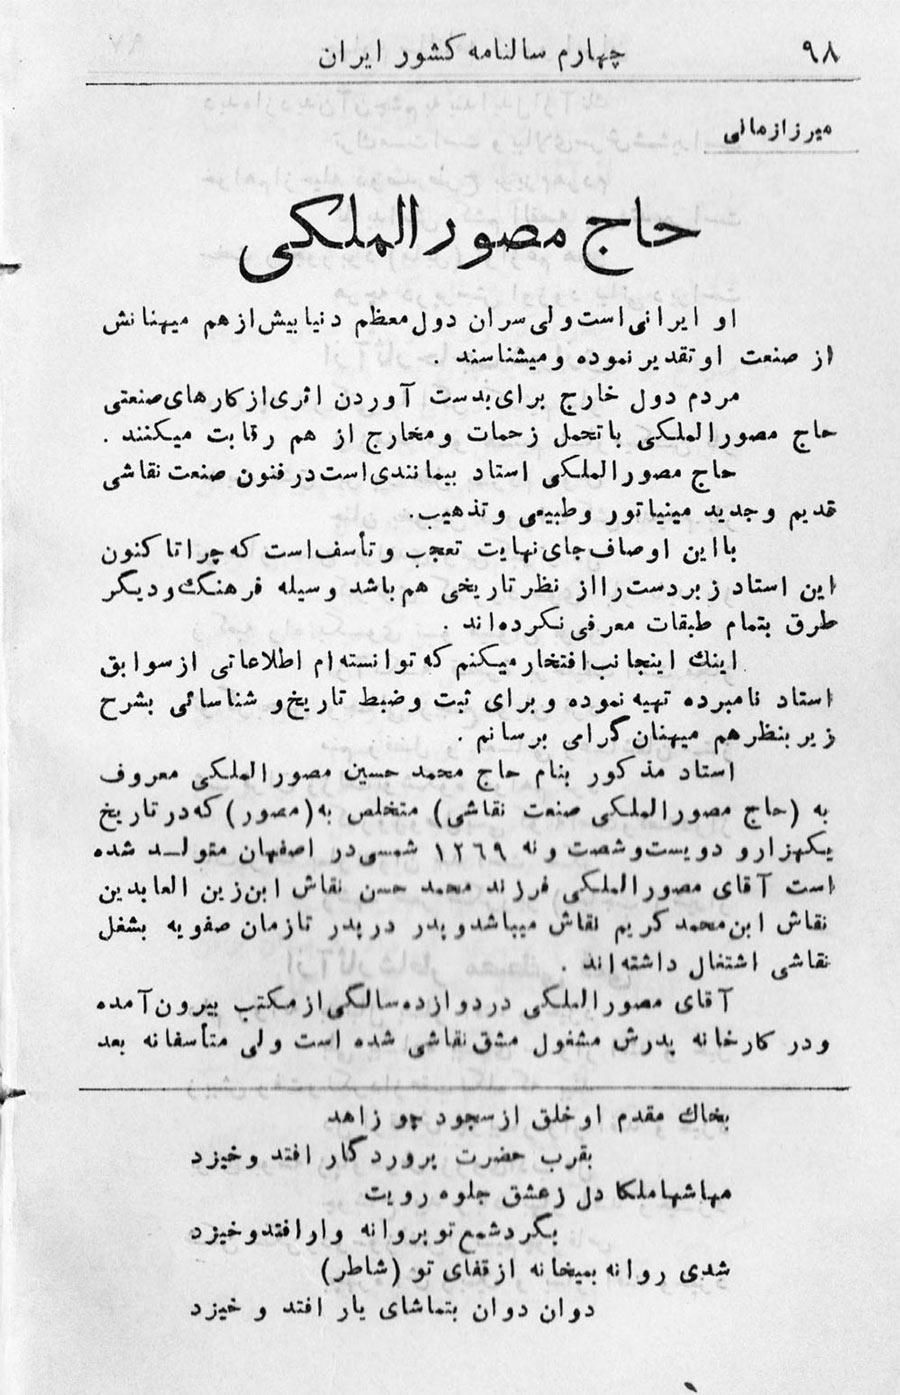 ۹۸
چهارم سالنامه کشور ایران
میرزازمانی
حاج مصورالملکی
او ایرانی‌است‌ولی‌سران دول‌معظم دنیا بیش‌ازهم میهنانش
از صنعت او تقدیر نموده و میشناسند .
مردم دول خارج برای‌بدست آوردن اثری‌ازکارهای‌صنعتی
حاج مصورالملکی باتحمل زحمات و مخارج از هم رقابت میکنند .
حاج مصورالملکی استاد بیمانندی‌است‌درفنون صنعت نقاشی
قدیم و جدید مینیاتور و طبیعی و تذهیب.
بااین اوصاف جای‌نهایت تعجب و تأسف‌است که‌چرا تا کنون
این استاد زبردست‌رااز نظر تاریخی هم‌باشد وسیله فرهنگ‌ودیگر
طرق بتمام طبقات معرفی نکرده‌اند .
اینك اینجانب‌افتخار میکنم که‌توانسته‌ام اطلاعاتی ازسوابق
استاد نامبرده تهیه نموده و برای ثبت وضبط تاریخ‌و شناسائی بشرح
زیر بنظرهم میهنان گرامی برسانم .
استاد مذکور بنام حاج محمد حسین مصورالملکی معروف
به (حاج مصورالملکی صنعت نقاشی) متخلص به(مصور) که‌در تاریخ
یکهزارو دویست‌وشصت و نه ۱۲۶۹ شمسی‌در اصفهان متولـد شده
است آقای مصورالملکی فرزند محمد حسن نقاش ابن‌زین العابدین
نقاش ابن‌محمد کریم نقاش میباشدو پدر در پدر تازمان صفویه بشغل
نقاشی اشتغال داشته‌اند .
آقای مصورالملکی دردوازده‌سالگی‌ازمکتب بیرون‌آمده
و در کارخانه پدرش مشغول مشق‌نقاشی شده است ولی متأسفانه بعد
بخاك مقدم او خلق ازسجود چو زاهد
بقرب حضرت پروردگار افتد و خیزد
مهاشهاملکا دل زعشق جلوه رویت
بگردشمع‌تو پروانه وارافتدوخیزد
شدی روانه بمیخانه ازقفای تو (شاطر)
دوان دوان بتماشای یار افتد و خیزد